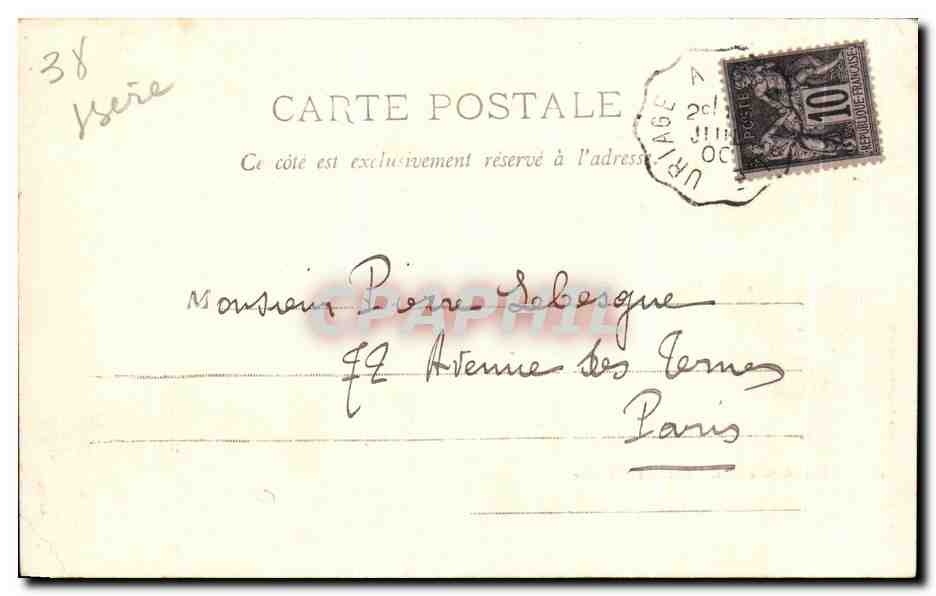 38
Isère
CARTE POSTALE
Ce côté est exclusivement réservé à l'adresse
URIAGE
7
JUIN
00
POSTES
10
REPUBLIQUE FRANÇAISE
Monsieur Pierre Lebesgue
77 Avenue des Ternes
Paris
CPAPHIL